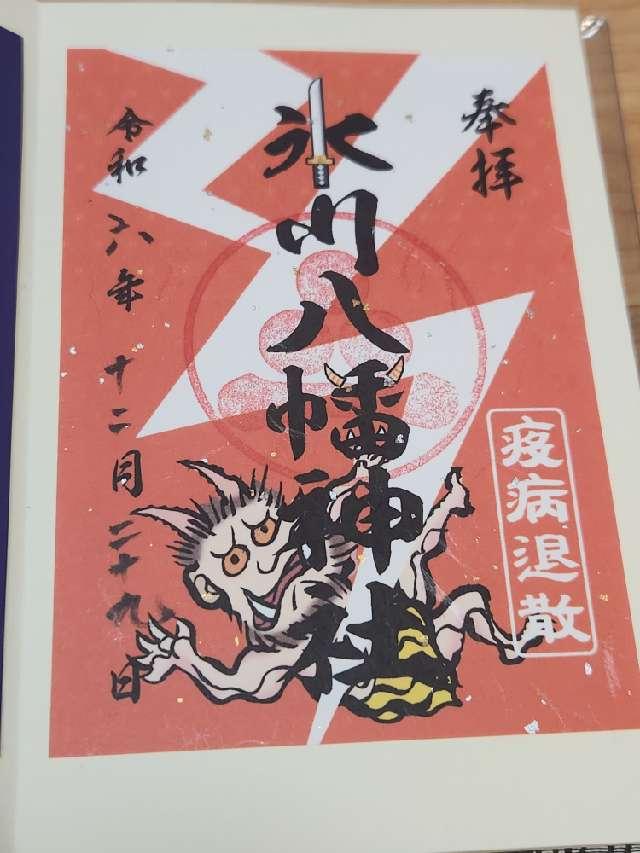 奉拝
氷川八幡神社
疫病退散
令和六年十二月二十九日